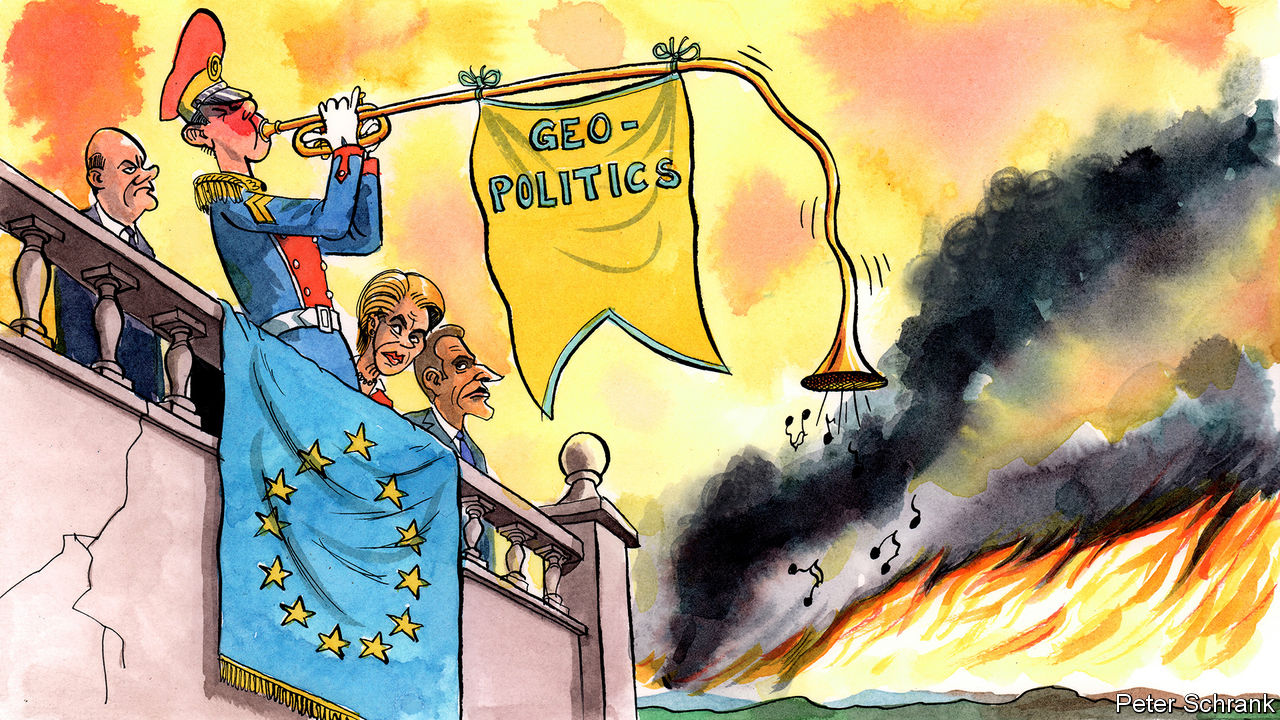 GEO-
POLITICS
Peter Schrank